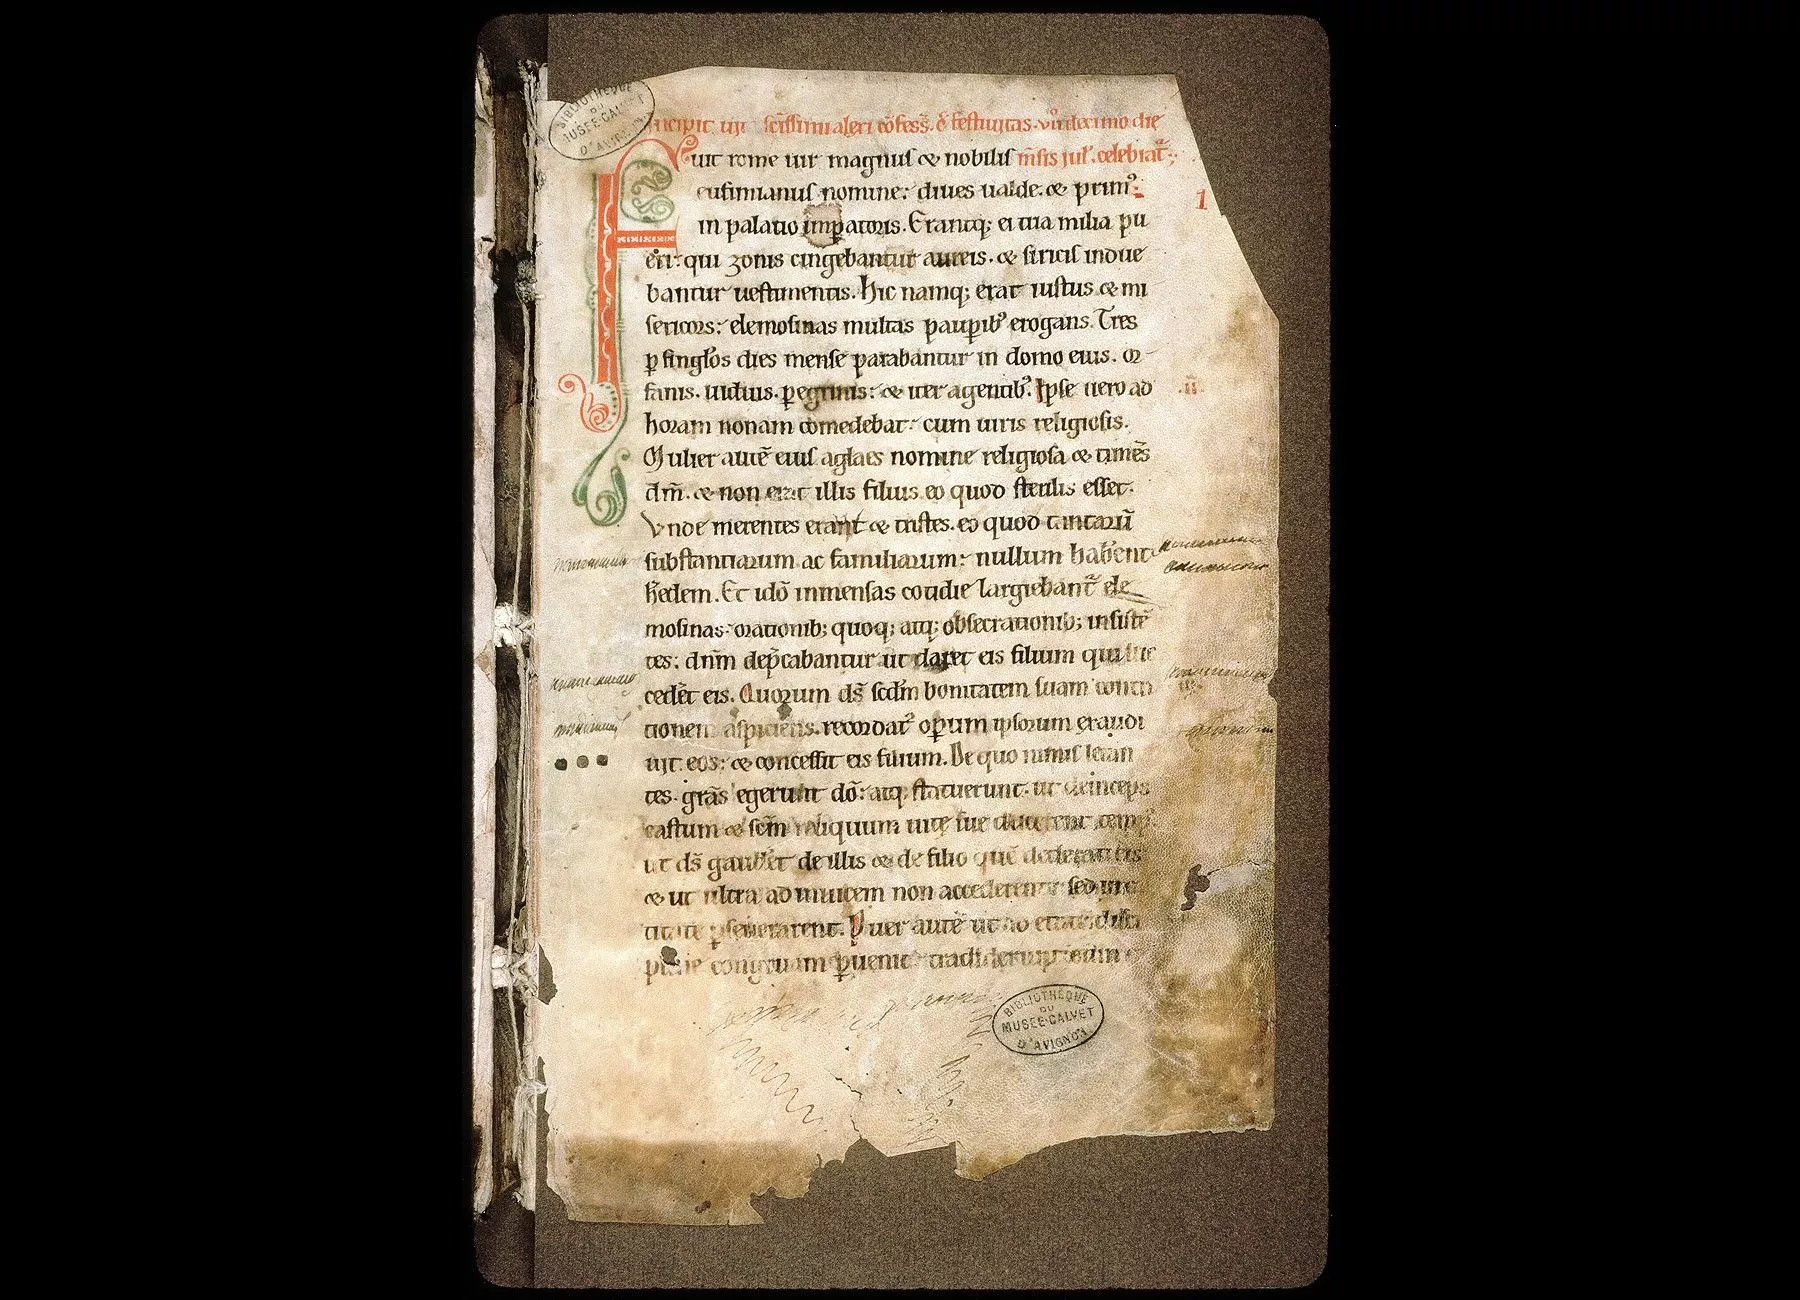 BIBLIOTHÈQUE
DU
MUSÉE-CALVET
D'AVIGNON
Incipit uit sc̄issimi alexi cōfess̄. ꝙ festiuitas. viꝰdecimo die
Fuit rome uir magnus & nobilis m̄sis jul'. celebrat᷑;
eufimianus nomine: diues ualde. & primꝰ:
in palatio imꝑatoris. Erantq; ei tria milia pu
eri: qui zonis cingebantur aureis. & siricis indue
bantur uestimentis. Hic namq; erat iustus & mi
sericors: elemosinas multas pauꝑibꝰ erogans. Tres
ꝑ singlos dies mense parabantur in domo eius. or
fanis. uiduis. ꝑegrinis: & iter agentibꝰ. Ipse uero ad
horam nonam comedebat: cum uiris religiosis.
Mulier autē eius aglaes nomine religiosa & timēs
dm̄. & non erat illis filius eo quod sterilis esset.
Vnde merentes erant & tristes. eo quod tantarū
substantiarum ac familiarum: nullum habent
h̄edem. Et idō inmensas cotidie largiebant᷑ ele
mosinas: orationib; quoq; atq; obsecrationib; insistē
tes: dn̄m dep̄cabantur ut daret eis filium qui suc
ced̄et eis. Quorum ds̄ scd̄m bonitatem suam contri
tionem aspiciens. recordat᷑ oꝑum ipsorum exaudi
uit eos: & concessit eis filium. De quo nimis letan
tes. grās egerunt dō: atq; statuerunt. ut deinceps
castum & sc̄m reliquum uitę sue ducerent temp
ut ds̄ gaud̄et de illis & de filio quē dederat eis
& ut ultra ad inuicem non accederent sed in ca
titate ꝑseuerarent. Puer autē ut ad etatē disci
pline congruam ꝑuenit tradiderunt eum
1
.ii.
BIBLIOTHÈQUE
DU
MUSÉE-CALVET
D'AVIGNON